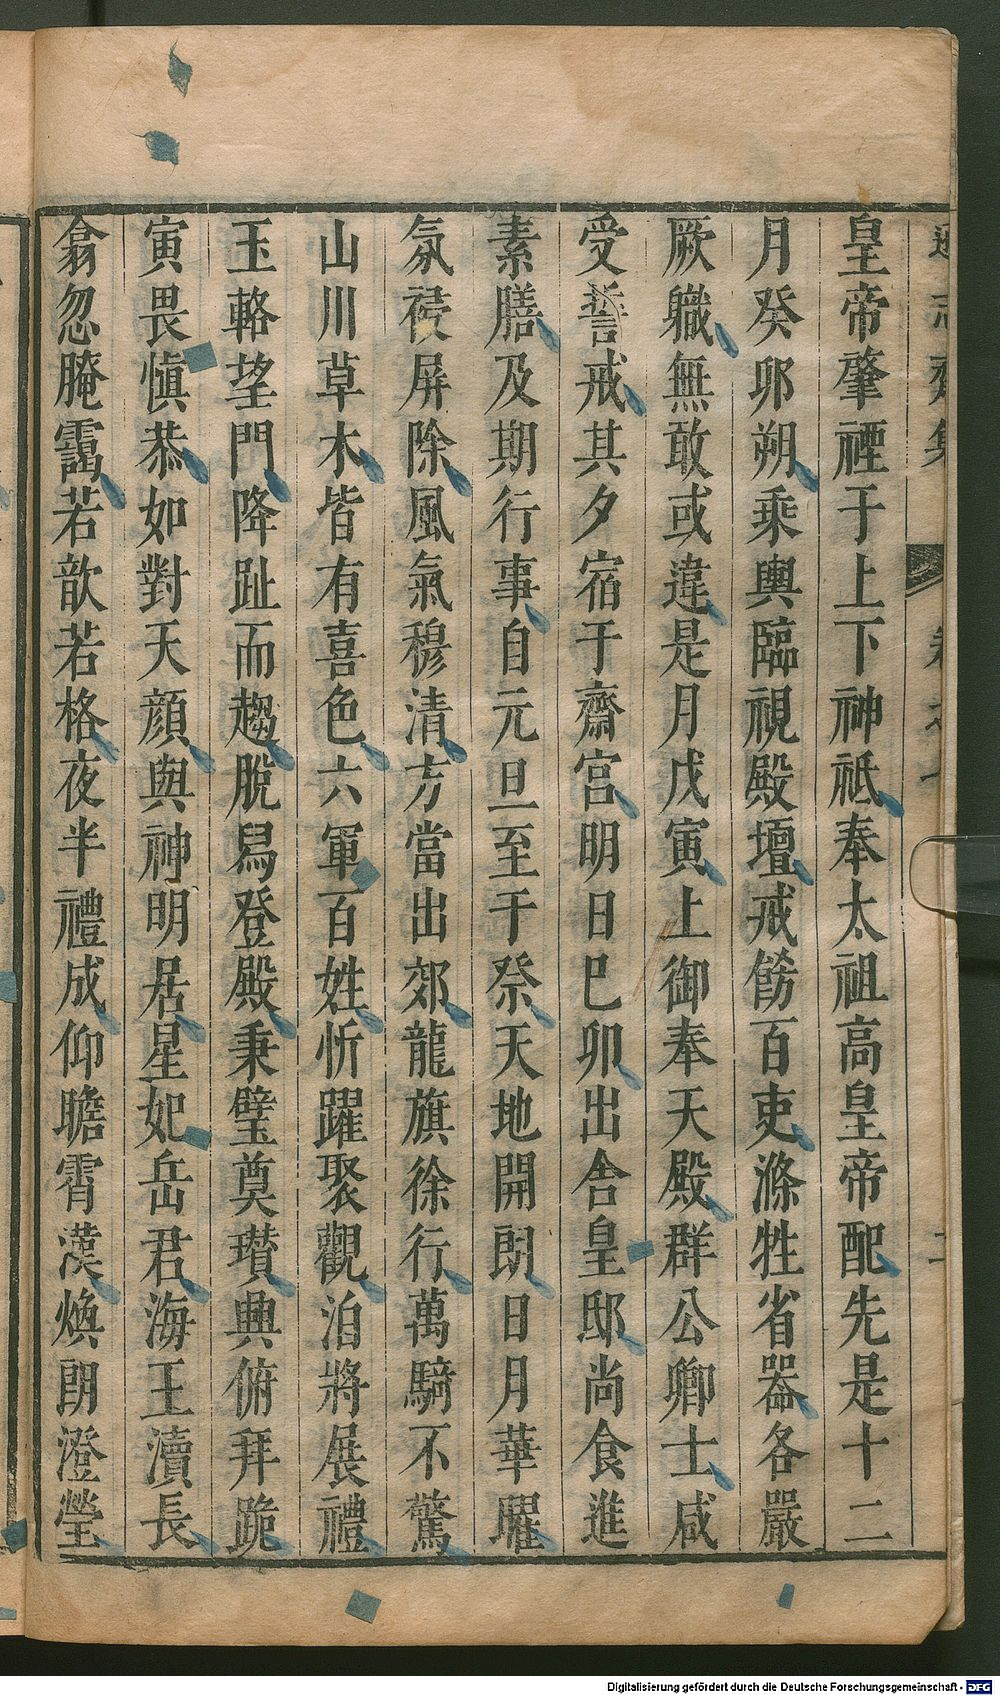 皇帝肇禋于上下神祗奉太祖高皇帝配先是十二
月癸卯朔乘輿臨視殿壇戒飭百吏滌牲省器各嚴
厥職無敢或違是月戊寅上御奉天殿群公卿士咸
受誓戒其夕宿于齋宮明日巳卯出舍皇邸尚食進
素膳及期行事自元旦至于祭天地開朗日月華曜
氛祲屏除風氣穆清方當出郊龍旗徐行萬騎不驚
山川草木皆有喜色六軍百姓忻躍聚觀洎將展禮
玉輅望門降趾而趨脫舄登殿秉璧奠瓚興俯拜跪
寅畏慎恭如對天顏與神明居星妃岳君海王瀆長
翕忽腌靄若歆若格夜半禮成仰瞻霄漢煥朗澄瑩
遜志齋集 卷之七 二
Digitalisierung gefördert durch die Deutsche Forschungsgemeinschaft - DFG